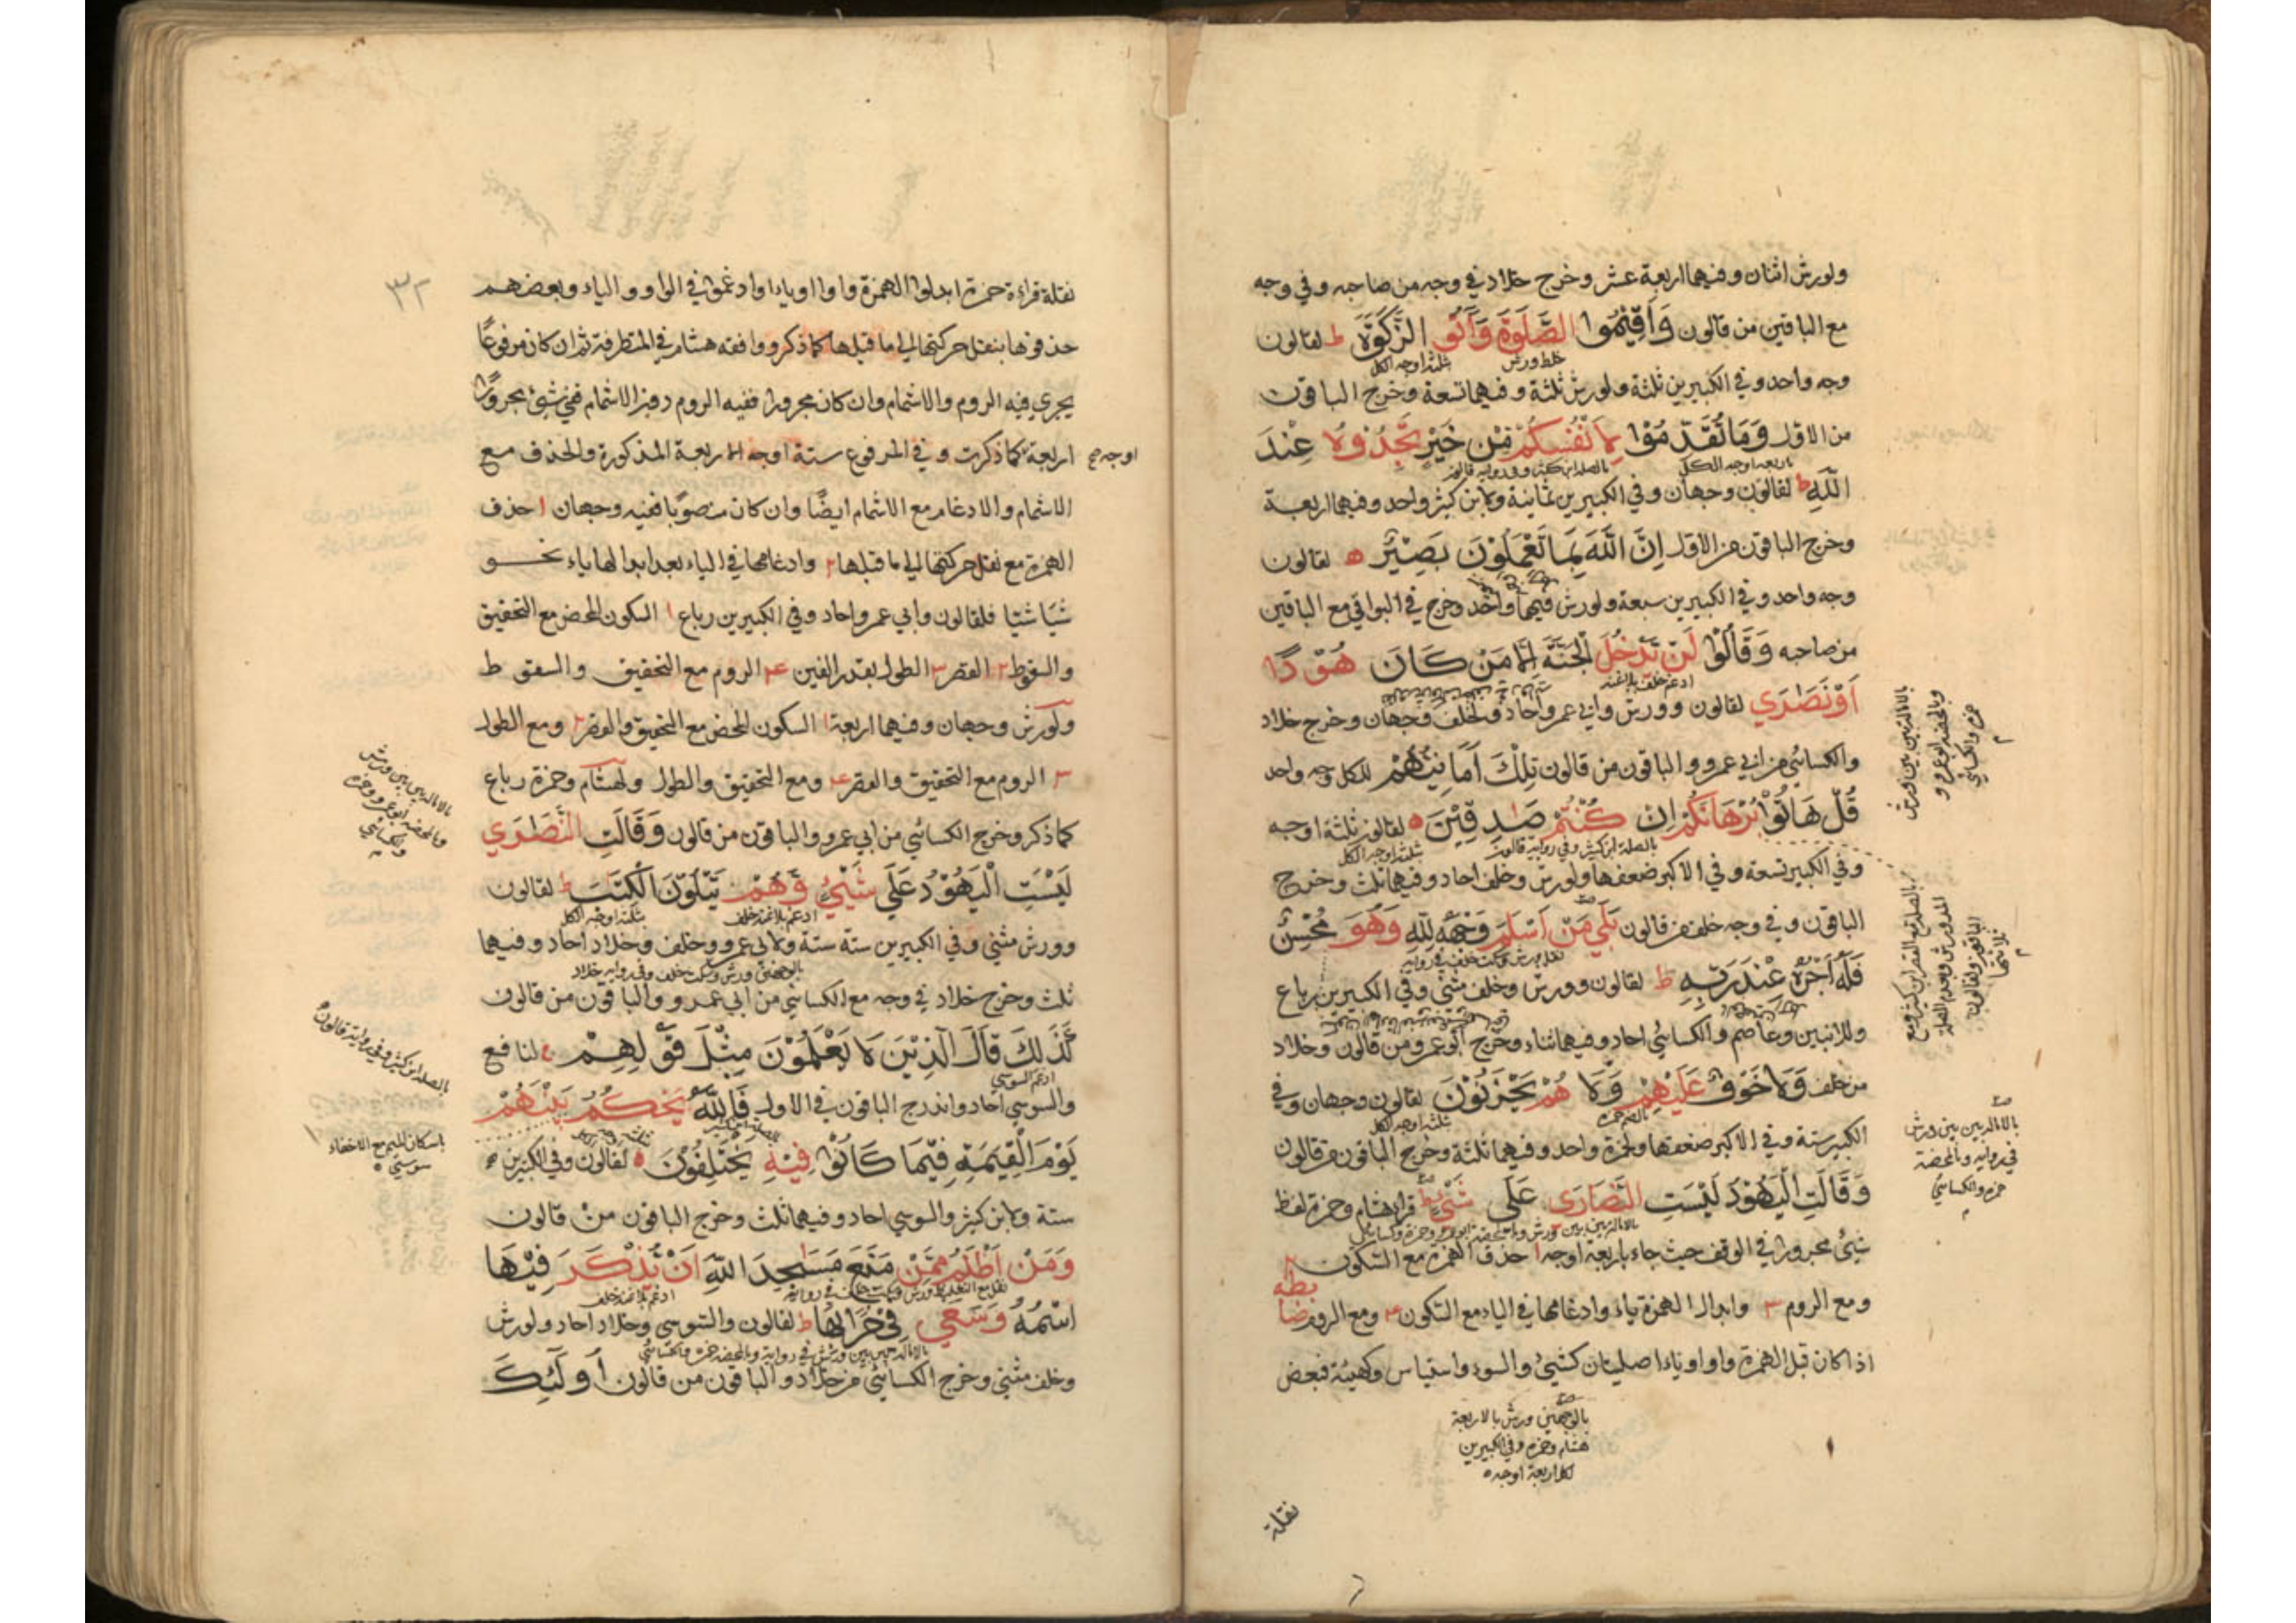 ولورش اثنان وفيهما اربعة عشر وخرج خلاد في وجه من صاحبه وفي وجه
مع الباقين من قالون وَاَقِيْمُوا الصَّلٰوةَ وَآتُو الزَّكٰوةَ ط لقالون
غلظ ورش
ثلثة اوجه الكل
وجه واحد وفي الكبيرين ثلثة ولورش ثلثة وفيهما تسعة وخرج الباقون
من الاول وَمَا تُقَدِّمُوْا لِاَنْفُسِكُمْ مِنْ خَيْرٍ تَجِدُوْهُ عِنْدَ
بالصلة ابن كثير وفي رواية قالون
اربعة اوجه الكل
اللّٰهِ ط لقالون وجهان وفي الكبيرين ثمانية ولابن كثير واحد وفيهما اربعة
وخرج الباقون من الاول اِنَّ اللّٰهَ بِمَا تَعْمَلُوْنَ بَصِيْرٌ ه لقالون
وجه واحد وفي الكبيرين سبعة ولورش فيهما واحد وخرج في البواقي مع الباقين
من صاحبه وَقَالُوْا لَنْ يَدْخُلَ الْجَنَّةَ اِلَّا مَنْ كَانَ هُوْدًا
ادغم خلف بلا غنة
اَوْ نَصٰرٰي لقالون وورش وابي عمرو احاد ولخلف وجهان وخرج خلاد
والكسائي من ابي عمرو والباقون من قالون تِلْكَ اَمَانِيُّهُمْ للكل وجه واحد
قُلْ هَاتُوْا بُرْهَانَكُمْ اِنْ كُنْتُمْ صٰدِقِيْنَ ه لقالون ثلثة اوجه
بالصلة ابن كثير وفي رواية قالون
ثلثة اوجه الكل
وفي الكبير تسعة وفي الاكبر ضعفها ولورش وخلف احاد وفيهما ثلث وخرج
الباقون وفي وجه خلف من قالون بَلٰي مَنْ اَسْلَمَ وَجْهَهُ لِلّٰهِ وَهُوَ مُحْسِنٌ
فَلَهُ اَجْرُهُ عِنْدَ رَبِّهِ ط لقالون وورش وخلف مثني وفي الكبيرين رباع
وللاثنين وعاصم والكسائي احاد وفيهما ثناء وخرج ابو عمرو من قالون وخلاد
من خلف وَلَا خَوْفٌ عَلَيْهِمْ وَلَا هُمْ يَحْزَنُوْنَ لقالون وجهان وفي
بالضم حمزه
ثلثة اوجه الكل
الكبير ستة وفي الاكبر ضعفها ولحمزة واحد وفيهما ثلثة وخرج الباقون من قالون
وَقَالَتِ الْيَهُوْدُ لَيْسَتِ النَّصَارٰى عَلٰى شَيْئٍ ط قرا هشام وحمزة لفظ
شيئ مجرورا في الوقف حيث جاء باربعة اوجه ١ حذف الهمزة مع السكون ٢
ومع الروم ٣ وابدال الهمزة ياء وادغامها في الياء مع السكون ٤ ومع الروم
اذا كان قبل الهمزة واو او ياء اصليتان كشيئ والسوء واستياس وكهيئة فبعض
بالوجهين ورش بالاربعة
هشام وحمزه وفي الكبيرين
لكل اربعة اوجه
نقلة
بالامالة بين بين ورش
وبالمحضة ابو عمرو و
حمزه والكسائي
بالامالة بين بين ورش
في رواية وبالمحضة
حمزه والكسائي
٣٢
نقلة قراءة حمزة ابدلوا الهمزة واوا او ياءا وادغموا في الواو والياء وبعضهم
حذفوها بنقل حركتها الي ما قبلها كما ذكر ووافقه هشام في المتطرفة ثم ان كان مرفوعًا
يجري فيه الروم والاشمام وان كان مجرورا ففيه الروم دون الاشمام ففي شيئ مجرورًا
اربعة كما ذكرت وفي المرفوع ستة اوجه الاربعة المذكورة والحذف مع
اوجه صح
الاشمام والادغام مع الاشمام ايضًا وان كان منصوبًا ففيه وجهان ١ حذف
الهمزة مع نقل حركتها الي ما قبلها ٢ وادغامها في الياء بعد ابدالها ياء نحو
شيَا شيّا فلقالون وابي عمرو احاد وفي الكبيرين رباع ١ السكون المحض مع التحقيق
والسقوط ٢ القصر ٣ الطول بقدر الفين ٤ الروم مع التحقيق والسقوط
ولورش وجهان وفيهما اربعة ١ السكون المحض مع التحقيق والقصر ٢ ومع الطول
٣ الروم مع التحقيق والقصر ٤ ومع التحقيق والطول ولهشام وحمزة رباع
كما ذكر وخرج الكسائي من ابي عمرو والباقون من قالون وَقَالَتِ النَّصٰرٰي
لَيْسَتِ الْيَهُوْدُ عَلٰي شَيْئٍ وَّهُمْ يَتْلُوْنَ الْكِتٰبَ ط لقالون
ادغم بلا غنة خلف
ثلثة اوجه الكل
وورش مثني وفي الكبيرين ستة ستة ولابي عمرو وخلف وخلاد احاد وفيهما
ثلث وخرج خلاد في وجه مع الكسائي من ابي عمرو والباقون من قالون
كَذٰلِكَ قَالَ الَّذِيْنَ لَا يَعْلَمُوْنَ مِثْلَ قَوْلِهِمْ ه لنافع
ادغم السوسي
والسوسي احاد واندرج الباقون في الاول فَاللّٰهُ يَحْكُمُ بَيْنَهُمْ
يَوْمَ الْقِيٰمَةِ فِيْمَا كَانُوْا فِيْهِ يَخْتَلِفُوْنَ ه لقالون وفي الكبيرين
ستة ولابن كثير والسوسي احاد وفيهما ثلث وخرج الباقون من قالون
وَمَنْ اَظْلَمُ مِمَّنْ مَنَعَ مَسٰجِدَ اللّٰهِ اَنْ يُذْكَرَ فِيْهَا
ادغم بلا غنة خلف
اسْمُهُ وَسَعٰي فِيْ خَرَابِهَا ط لقالون والسوسي وخلاد احاد ولورش
وخلف مثني وخرج الكسائي من خلاد والباقون من قالون اُولٰٓئِكَ
بالامالة بين بين ورش
وبالمحضة ابو عمرو وحمزه
والكسائي
بالصلة ابن كثير وفي رواية قالون
باسكان الميم مع الاخفاء
سوسي